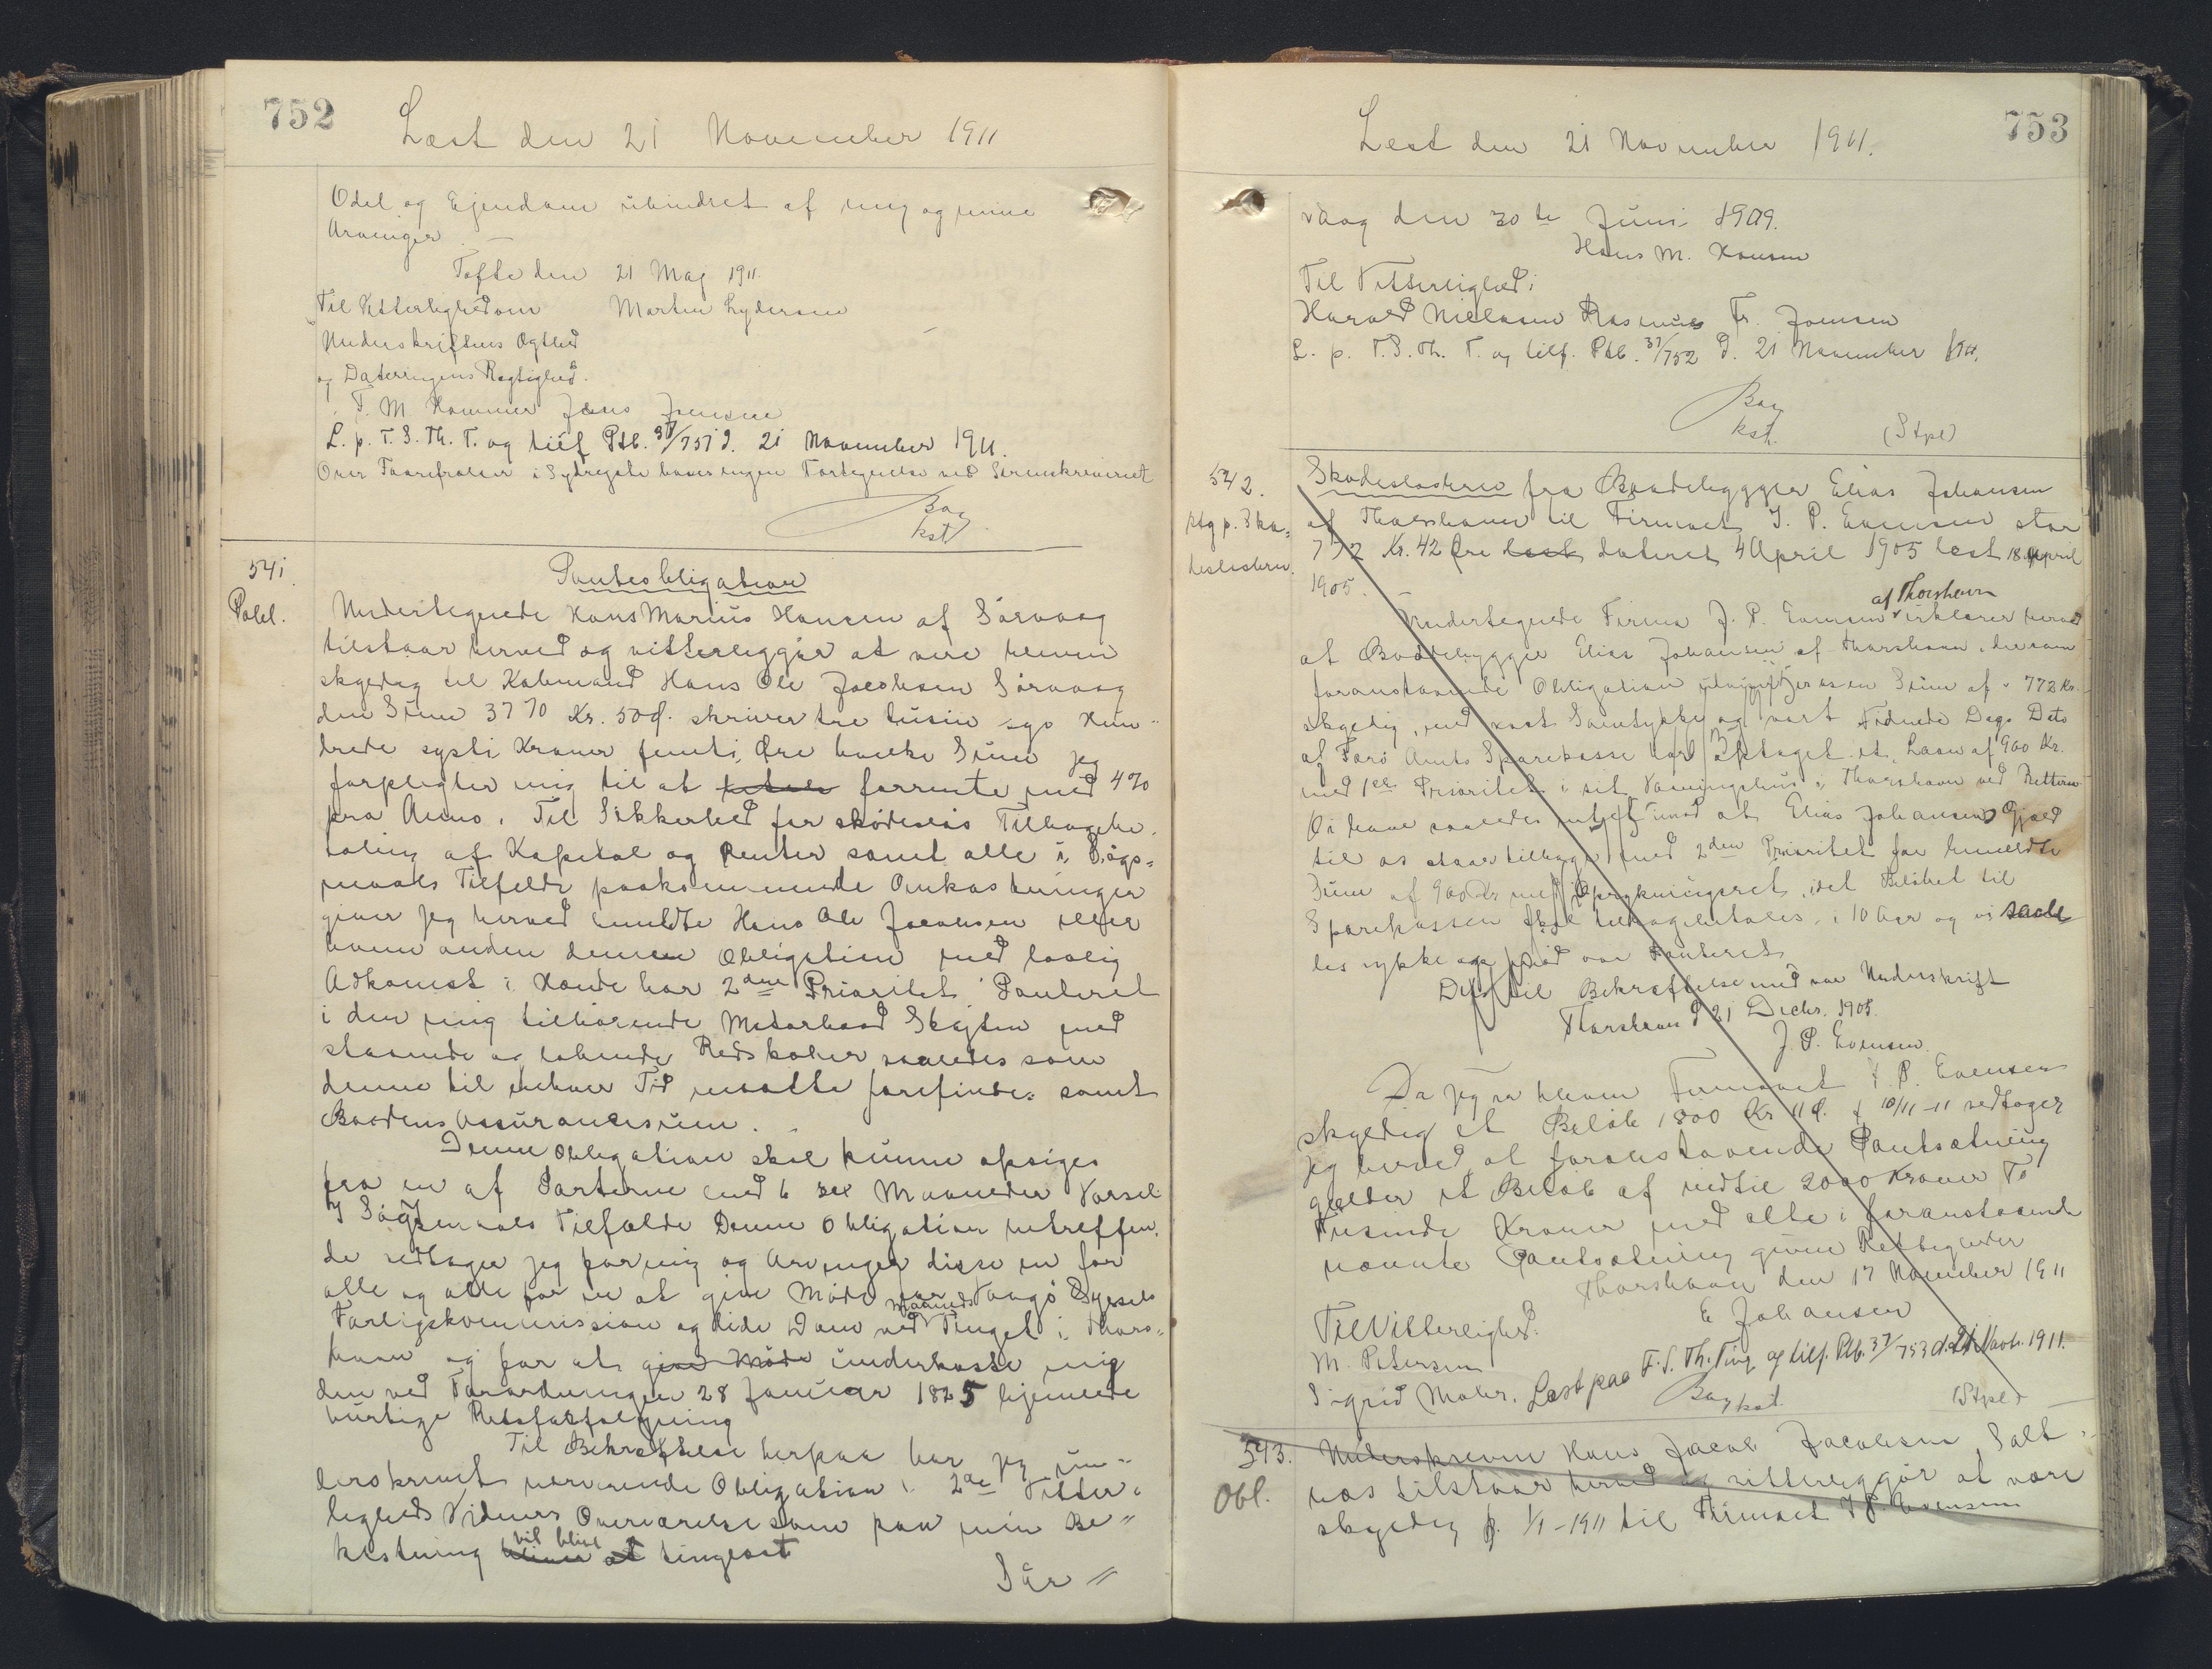 752
Læst den 21 November 1911
Odel og Ejendom uhindret af mig og mine
Arvinger. —
Tofte den 21 Maj 1911.
Til Vitterlighed om Martin Lydersen
Underskriftens Ægthed
og Dateringens Rigtighed.
T. M. Hammer Jens Joensen
L. p. T. S. Th. T. og tilf Ptb. 37/751 d. 21 November 1911.
Over Faarefrælser i Sydregote haves ingen Fortegnelse ved Sorenskriveriet
Bay
kst
541.
Pobl.
Pantesobligation
Undertegnede Hans Marius Hansen af Sørvaag
tilstaar herved og vitterliggjør at være bleven
skyldig til Købmand Hans Ole Jacobsen Sørvaag
den Sum 3770 Kr. 50 Ø. skriver tre tusin syv Hun-
drede systi Kroner femti Øre hvilke Sum jeg
forpligter mig til at betale forrente med 4%
pro Anno. Til Sikkerhed for skadesløs Tilbagebe-
taling af Kapital og Renter samt alle i Søgs-
maals Tilfælde paakommende Omkostninger
giver jeg herved bemeldte Hans Ole Jacobsen eller
hvem anden denne Obligation med lovlig
Adkomst i Hænde har 2den Prioritet Panteret
i den mig tilhørende Motorbaad Skøjten med
staaende og løbende Redskaber saaledes som
denne til enhver Tid maatte forefindes samt
Baadens Assurancesum.
Denne Obligation skal kunne opsiges
fra en af Parterne med 6 sex Maaneders Varsel
I Søgsmaals Tilfælde Denne Obligation betreffen-
de vedtager jeg for mig og Arvinger disse en for
alle og alle for en at give Møde for Vaagø Syssels
Forligskommission og lide Dom ved Maaneds Tinget i Thors-
havn og for at give Møde underkaste mig
den ved Forordningen 28 Januar 1825 hjemlede
hurtige Retsforfølgning
Til Bekræftelse herpaa har jeg un-
derskrevet nærværende Obligation i 2de Vitter-
ligheds Vidners Overværelse som paa min Be-
kostning bliver at vil blive tinglæst
Sør-
753
Læst den 21 November 1911.
vaag den 30te Juni 1909.
Hans M. Hansen
Til Vitterlighed:
Harald Nielsen Rasmus Fr. Joensen
L. p. T. S. Th. T. og tilf. Ptb. 37/752 d. 21 November 1911.
Bay
kst. (Stpl)
542.
Ptg p. Ska-
desløsbrev.
Skadesløsbrev fra Baadebygger Elias Johansen
af Thorshavn til Firmaet J. P. Evensen stor
772 Kr. 42 Øre læst dateret 4 April 1905 læst 18 April
1905.
Undertegnede Firma J. P. Evensen af Thorshavn erklærer herved
at Baadebygger Elias Johansen af Thorshavn, der som
foranstaaende Obligation udviser os en Sum af 772 Kr.
skyldig, med vort Samtykke og vort Vidende Dags Dato
af Færø Amts Sparekasse har optaget et Laan af 900 Kr.
med 1ste Prioritet i sit Vaaningshus i Thorshavn ved Retten
Vi have saaledes intet imod at Elias Johansens Gjæld
til os staar tilbage med 2den Prioritet for bemeldte
Sum af 900 Kr med Oprykningsret, idet Beløbet til
Sparekassen skal tilbagebetales i 10 Aar og vi saale
des rykke op med vor Panteret
Dette til Bekræftelse med vor Underskrift
Thorshavn d 21 Decbr. 1905.
J. P. Evensen.
Da jeg er bleven Firmaet J. P. Evensen
skyldig et Beløb 1800 Kr 11 Ø. f 10/11-11 vedtager
jeg herved at foranstaaende Pantsætning
gælder et Beløb af indtil 2000 Kroner To
Tusinde Kroner med alle i foranstaaende
nævnte Pantsætning given Rettigheder
Thorshavn den 17 November 1911
E Johansen
Til Vitterlighed:
M. Petersen
Sigrid Mohr. Læst paa T. S. Th. Ting og tilf. Ptb. 37/753 d. 21 Novb. 1911.
Bay kst. (Stpl)
543.
Obl.
Underskrevne Hans Jacob Jacobsen Salt-
næs tilstaar herved og vitterliggør at være
skyldig p. 1/1-1911 til Firmaet J. P. Evensen